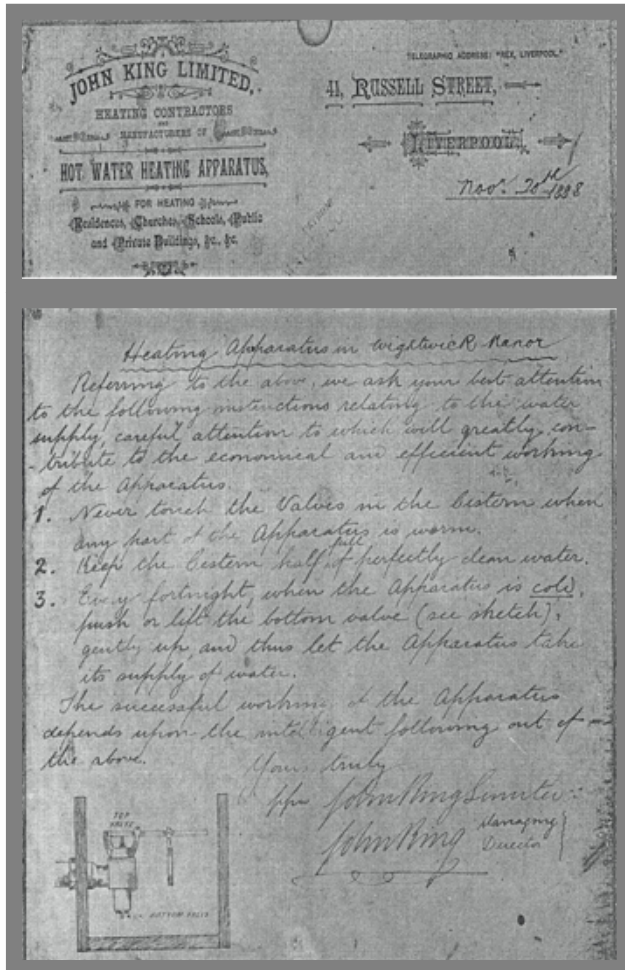 JOHN KING LIMITED,
HEATING CONTRACTORS
AND
MANUFACTURERS OF
HOT WATER HEATING APPARATUS,
FOR HEATING
Residences, Churches, Schools, Public
and Private Buildings, &c., &c.
TELEGRAPHIC ADDRESS: "REX, LIVERPOOL."
41, RUSSELL STREET,
LIVERPOOL,
Nov. 20th 1898
Heating Apparatus in Wightwick Manor
Referring to the above, we ask your best attention
to the following instructions relating to the water
supply, careful attention to which will greatly con-
-tribute to the economical and efficient working
of the Apparatus.
1. Never touch the Valves in the Cistern when
any part of the Apparatus is warm.
2. Keep the Cistern half full of perfectly clean water.
3. Every fortnight, when the Apparatus is cold,
push or lift the bottom valve (see sketch),
gently up, and thus let the Apparatus take
its supply of water.
The successful working of the Apparatus
depends upon the intelligent following out of
the above.
Yours truly
ppro John King Limited
John King Managing
Director
TOP
VALVE
BOTTOM VALVE